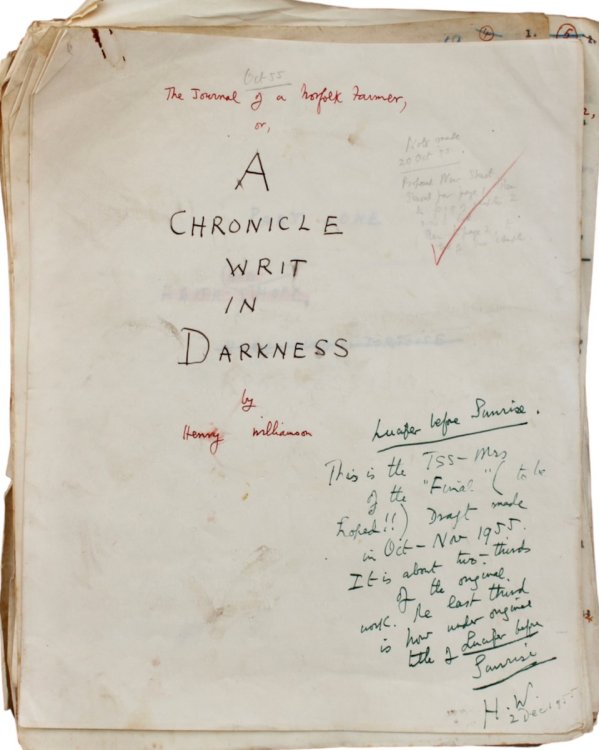 Oct 55
The Journal of a Norfolk Farmer,
or,
A
CHRONICLE
WRIT
IN
DARKNESS
by
Henry Williamson
made
20 Oct 55.
Lucifer before Sunrise.
This is the TSS-Mss
of the "Final" (to be
hoped!!) Draft made
in Oct-Nov 1955.
It is about two-thirds
of the original
work. The last third
is now under original
title of Lucifer before
Sunrise
H.W.
2 Dec 1955
1.